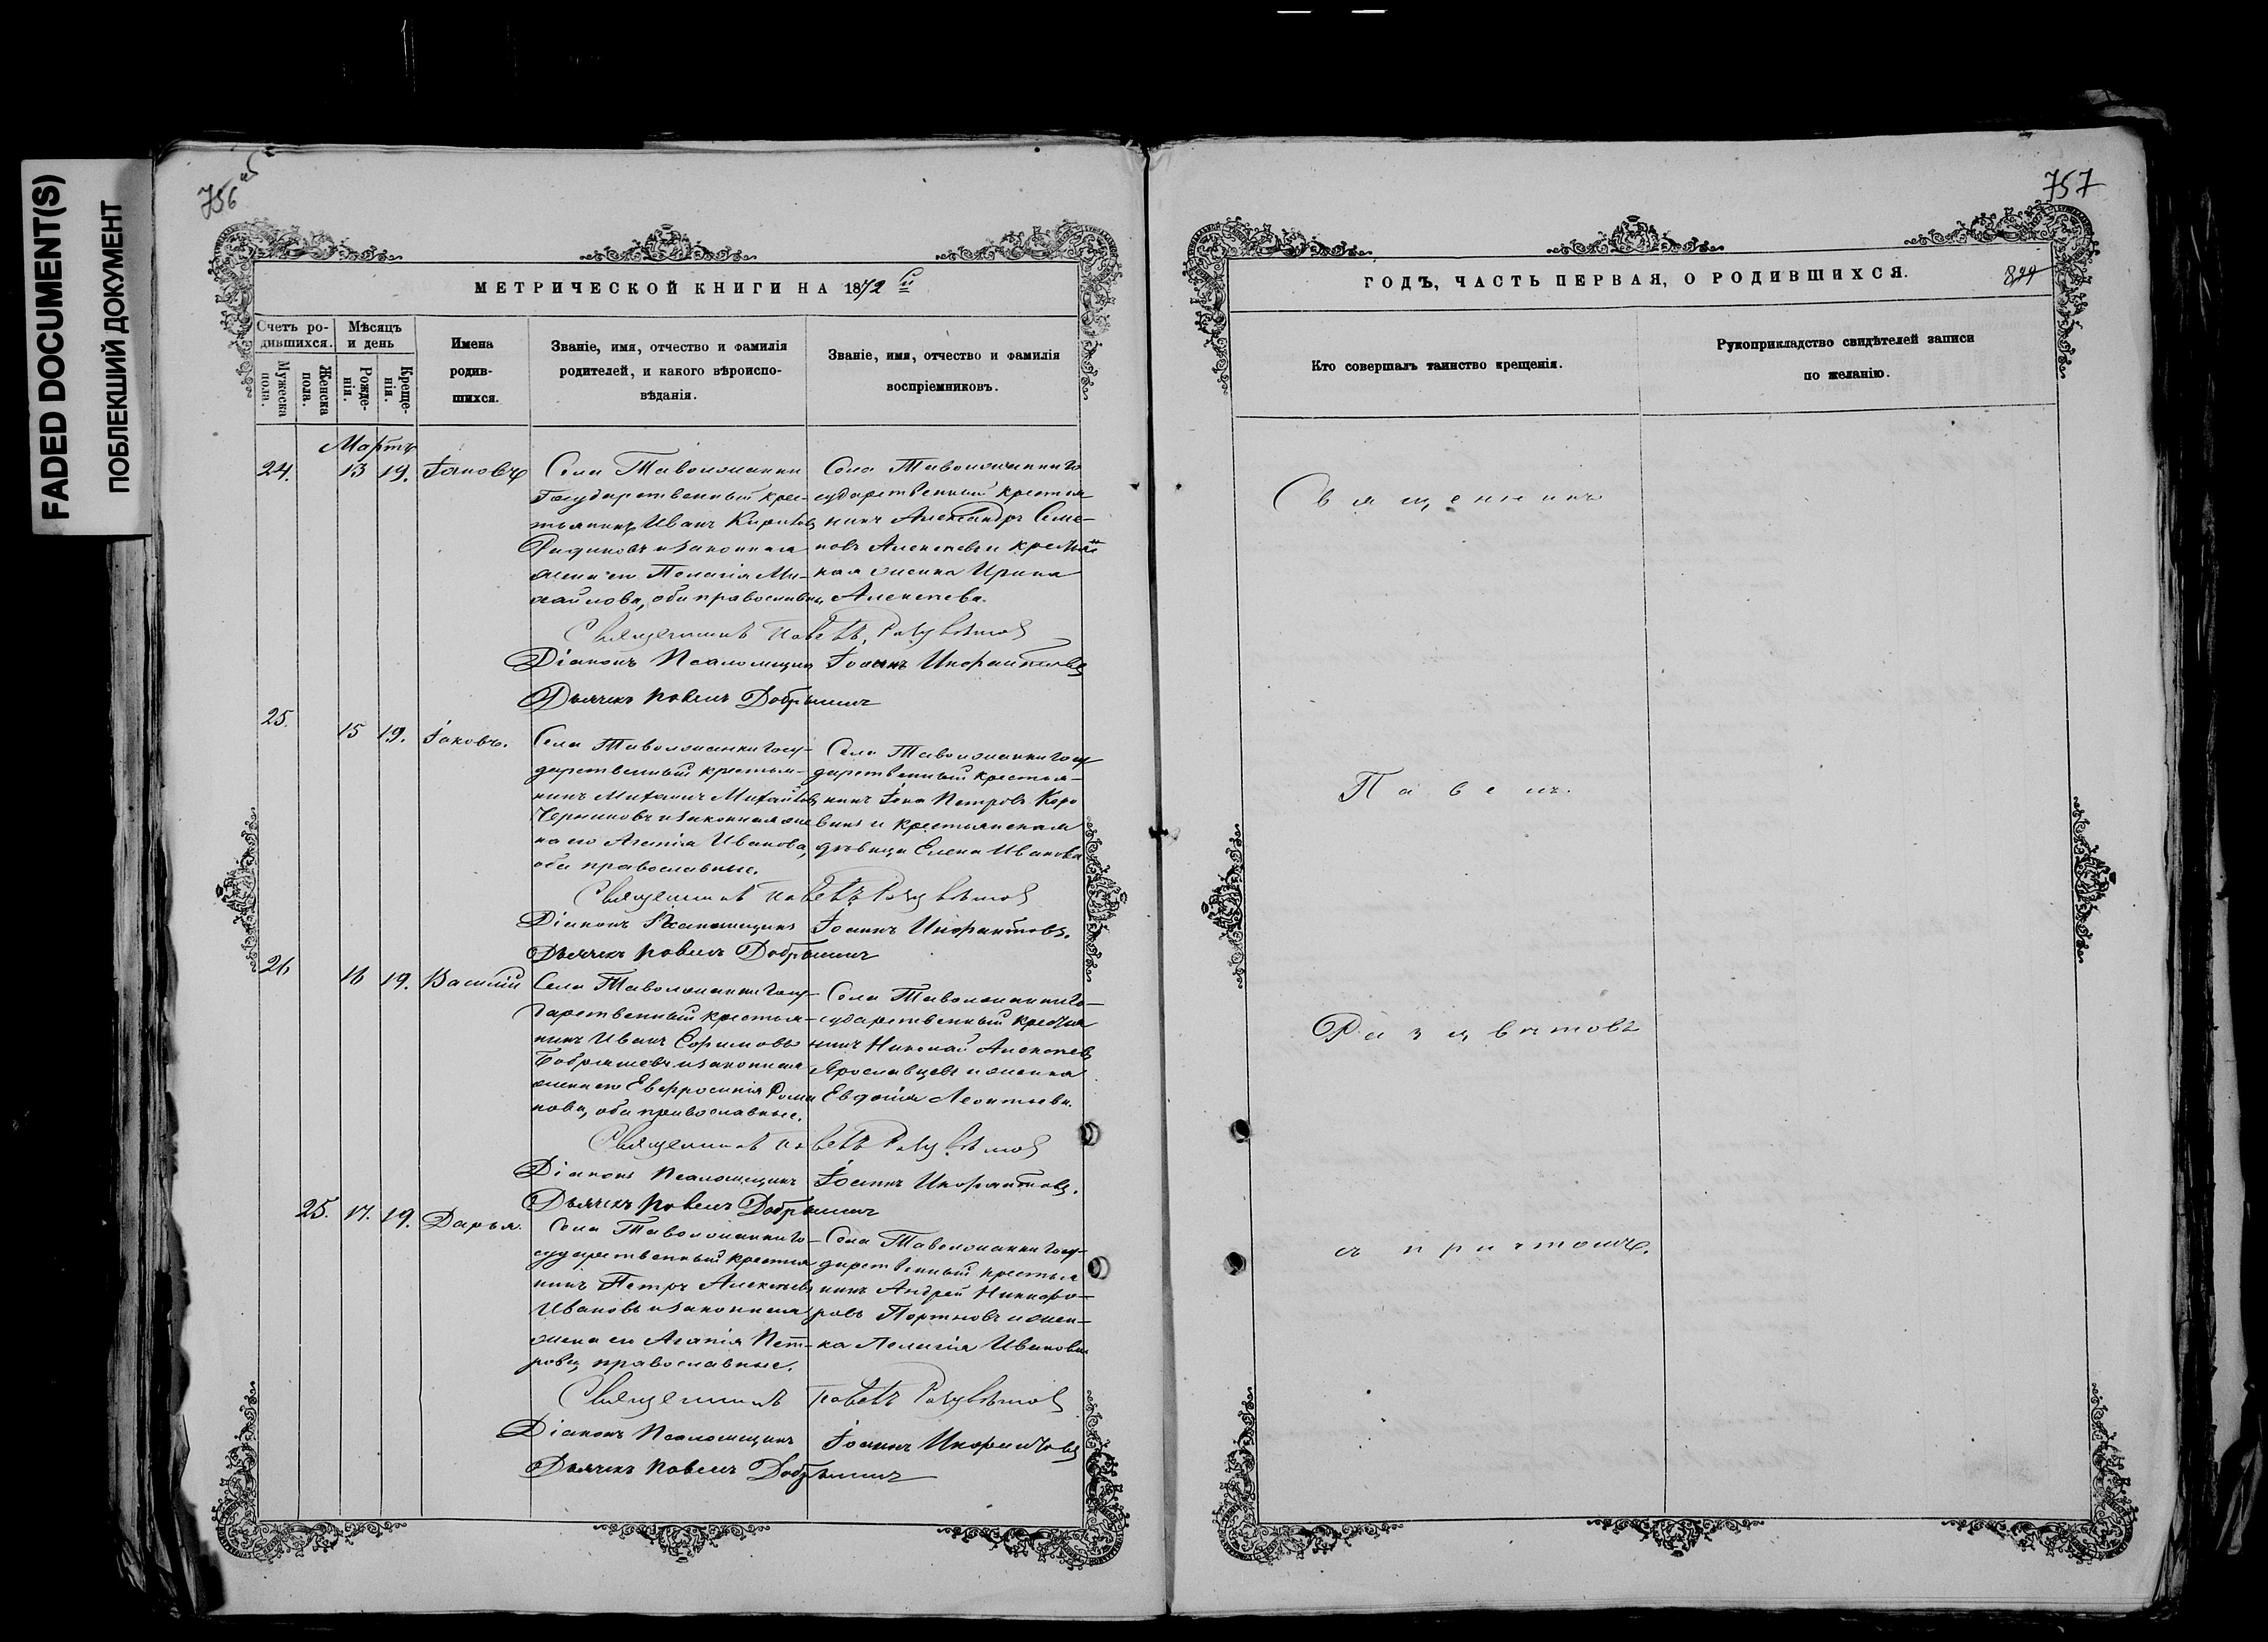 FADED DOCUMENT(S)
ПОБЛЕКШИЙ ДОКУМЕНТ
756 об
МЕТРИЧЕСКОЙ КНИГИ НА 1872 й
Счетъ ро-
дившихся.
Мѣсяцъ
и день
Мужеска
пола.
Женска
пола.
Рожде-
нія.
Креще-
нія.
Имена
родив-
шихся.
Званіе, имя, отчество и фамилія
родителей, и какого вѣроиспо-
вѣданія.
Званіе, имя, отчество и фамилія
воспріемниковъ.
Мартъ
24. 13 19. Іаковъ
Села Таволожанки
Государственный крес-
тьянинъ Иванъ
и законная
жена его Пелагія Ми-
хайлова, оба православны
Села Таволожанки Го
сударственный крестья
нинъ Александръ Семе-
новъ Алексѣевъ и крестьян
ская женка Ирина
Алексѣева.
Священникъ Павелъ Разцвѣтов
Діаконъ Псаломщикъ Іоаннъ
Дьячекъ Павелъ Добрынинъ
25. 15 19. Іаковъ.
Села Таволожанки Госу-
дарственный крестья-
нинъ Михаилъ Михайловъ
Черниковъ и законная же
на его Агапія Иванова,
оба православные.
Села Таволожанки Госу
дарственный крестья-
нинъ Іона Петровъ Коро
винъ и крестьянская
дѣвица Елена Иванова
Священникъ Павелъ Разцвѣтов
Діаконъ Псаломщикъ Іоаннъ
Дьячекъ Павелъ Добрынинъ
26 16 19. Василій
Села Таволожанки Госу-
дарственный крестья-
нинъ Иванъ
и законная
жена его Евфросинія Рома
нова, оба православные.
Села Таволожанки Го-
сударственный крестья
нинъ Николай Алексѣевъ
Ярославцевъ и женка
Евдокія Леонтьева.
Священникъ Павелъ Разцвѣтов
Діаконъ Псаломщикъ Іоаннъ
Дьячекъ Павелъ Добрынинъ
25. 17. 19. Дарья.
Села Таволожанки Го-
сударственный крестья
нинъ Петръ Алексѣевъ
Ивановъ и законная
жена его Агапія Пет-
рова, православные.
Села Таволожанки Госу-
дарственный крестья
нинъ Андрей Никифо-
ровъ Портновъ и жен-
ка Пелагія Иванова
Священникъ Павелъ Разцвѣтов
Діаконъ Псаломщикъ Іоаннъ
Дьячекъ Павелъ Добрынинъ
757
ГОДЪ, ЧАСТЬ ПЕРВАЯ, О РОДИВШИХСЯ.
Кто совершалъ таинство крещенія.
Рукоприкладство свидѣтелей записи
по желанію.
Священникъ
Павелъ
Разцвѣтовъ
съ причтомъ.